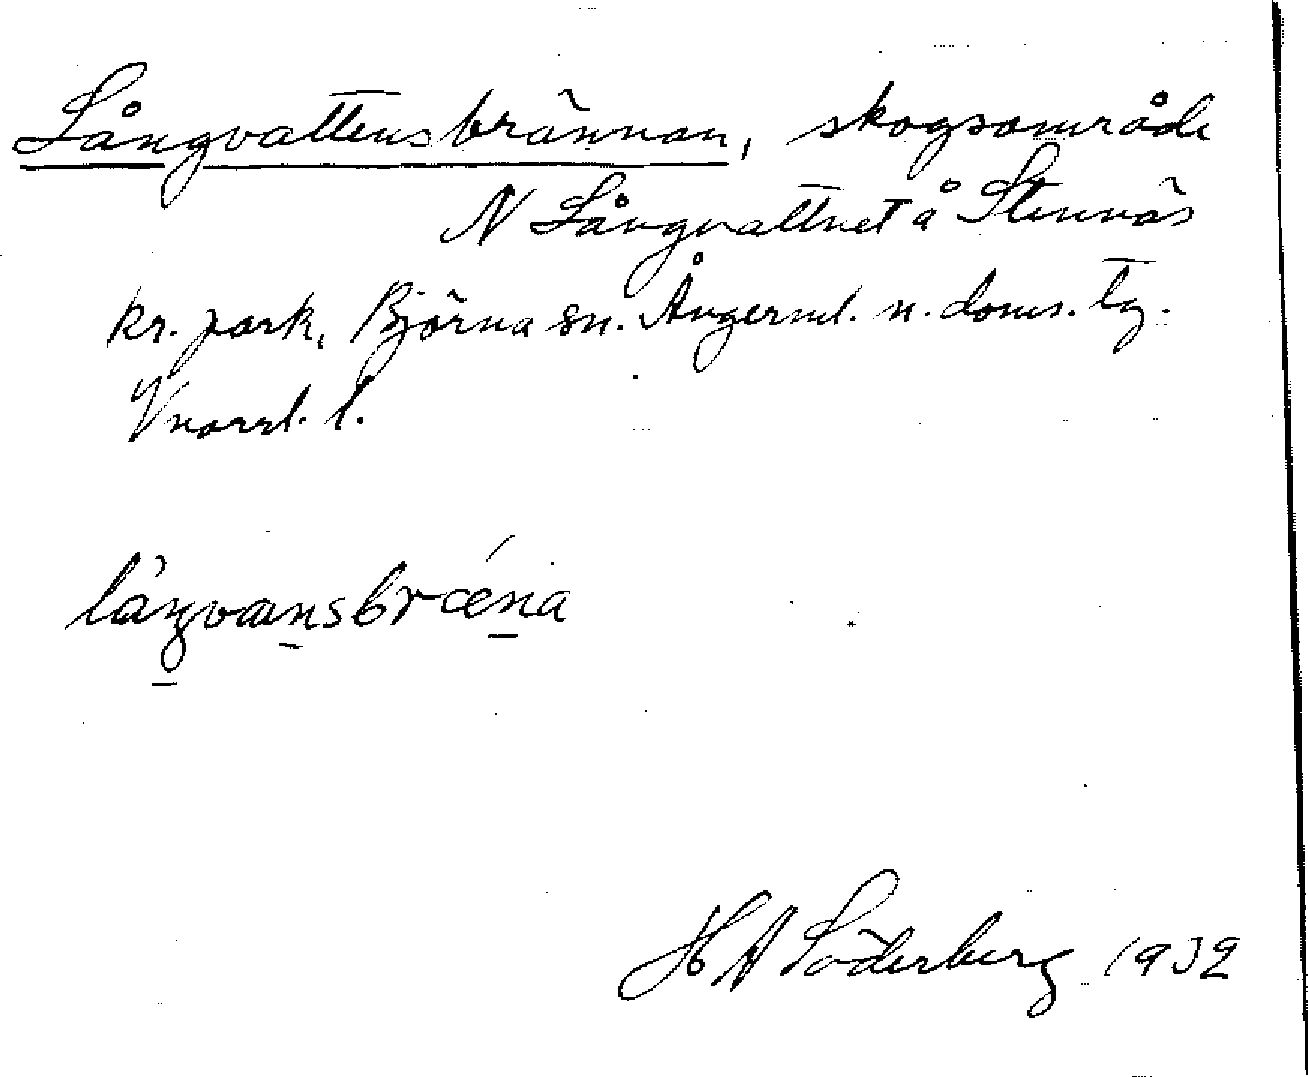 Långvattensbrännan, skogsområde
N Långvattnet å Stennäs
kr. park, Björna sn. Ångerml. n. doms. tg.
Vnorrl. l.
låŋvansbrǽna
H A Söderberg 1932